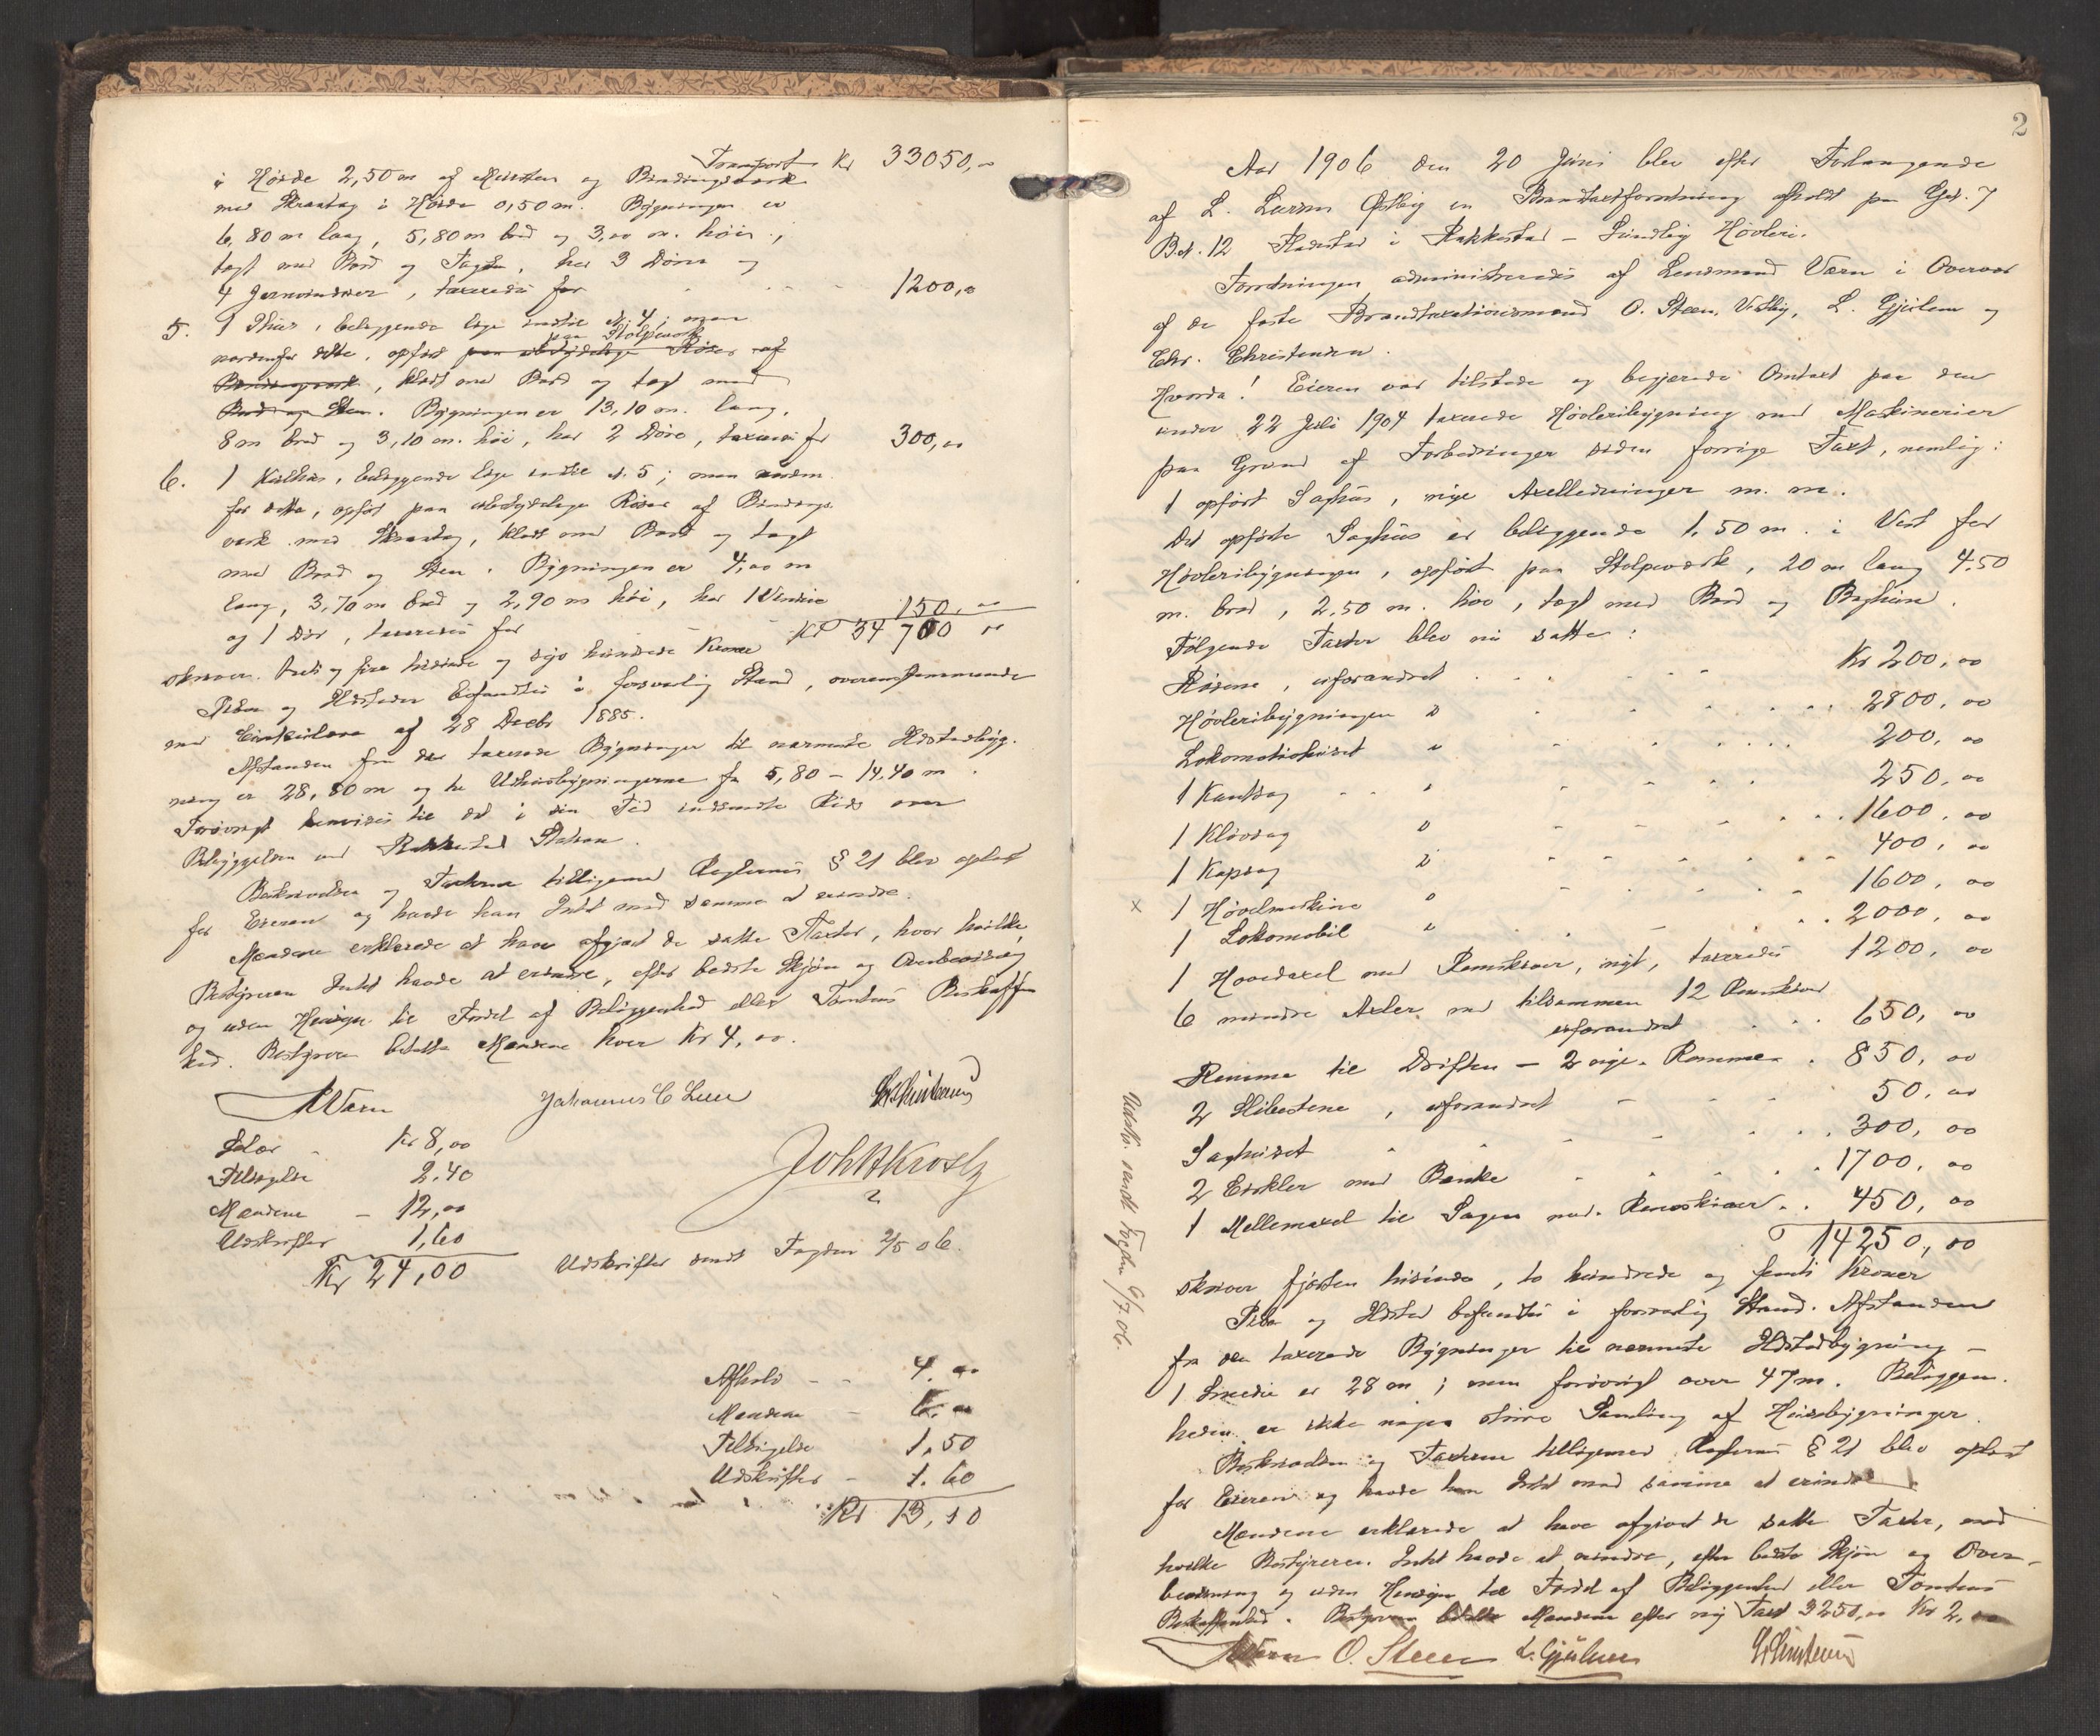 Transport Kr 33050,00
i Høide 2,50 m af Mursten og Bindingsværk
med Skraatag i Høide 0,50 m. Bygningen er
6,80 m lang, 5,80 m bred og 3,00 m. høi,
tagt med Bord og Tagsten, har 3 Døre og
4 Jernvinduer, taxeredes for 1200,00
5. 1 Skur, beliggende lige indtil N. 4; men
paa Stolpeværk
nordenfor dette, opført paa ubetydelige Röser af
Bindingsværk, klædt med Bord og tagt med
Bord og Sten. Bygningen er 13,10 m. lang,
8 m bred og 3,10 m. høi, har 2 Døre, taxeredes for 300,00
6. 1 Kulhus, beliggende lige indtil N. 5; men
for dette, opført paa ubetydelige Röser af Bindings-
værk med Skraatag, klædt med Bord og tagt
med Bord og Sten. Bygningen er 4,00 m
lang, 3,70 m bred og 2,90 m høi, har 1 Vindue
og 1 Dør, taxeredes for 150,00
Kr 34700 00
skriver tredi og fire tusinde og syv hundrede Kroner
Piber og Ildsteder befandtes i forsvarlig Stand, overensstemmende
med Cirkulære af 28 Decbr 1885.
Afstanden fra de taxerede Bygninger til nærmeste Ildstedbyg-
ning er 28,80 m og til Udhusbygningerne fra 5,80 – 14,40 m.
Forøvrigt henvises til det i sin Tid indsendte Rids over
Bebyggelsen ved Rakkestad Station.
Beskrivelsen og Taxterne tilligemed Reglernes § 21 blev oplæst
for Eieren og havde han Intet mod samme at erindre.
Mændene erklærede at have afgivet de satte Taxter, hvor hvilke
Bestyreren Intet havde at erindre, efter bedste Skjøn og Overbevisning
og uden Hensyn til Fordel af Beliggenhed eller Tomtens Beskaffen-
hed. Bestyreren betalte Mændene hver Kr 4,00.
Wærn Johannes C Lier Chr Christensen
Joh A Krosby
Solær - Kr 8,00
Tilsigelse 2,40
Mændene - 12,00
Udskrifter 1,60
Kr 24,00
Udskrifter sendt Fogden 2/5 06.
Afhold - - 4,00
Mændene - 6,00
Tilsigelse 1,50
Udskrifter - 1,60
Kr 13,10
2
Aar 1906 den 20 Juni blev efter Forlangende
af L. Østby en Brandtaxtforretning afholdt paa Gd. 7
B.N. 12 Fladstad i Rakkestad – Sundby Høvleri.
Forretningen administreredes af Lensmand Wærn i Overvær
af de faste Brandtaxationsmænd O. Steen, Vestby, L. Gjulem og
Chr. Christensen.
Hvorda! Eieren var tilstede og begjærede Omtaxt paa den
under 22 Juli 1904 taxerede Høvleribygning med Maskinerier
paa Grund af Forbedringer siden forrige Taxt, nemlig:
1 opført Saghus, nye Axelledninger m. m.
Det opførte Saghus er beliggende 1,50 m. i Vest for
Høvleribygningen, opført paa Stolpeværk, 20 m lang 4,50
m. bred, 2,50 m. høi, tagt med Bord og Baghun.
Følgende Taxter blev nu satte:
Röserne, uforandret Kr 200,00
Høvleribygningen " 2800,00
Lokomobilhuset " 200,00
1 Kantsag " 250,00
1 Kløvsag " 1600,00
1 Kapsag " 400,00
x 1 Høvelmaskine " 1600,00
1 Lokomobil " 2000,00
1 Hovedaxel med Remskiver, nyt, taxeredes 1200,00
6 mindre Axler med tilsammen 12 Remskiver
uforandret 650,00
Remme til Driften – 2 nye Remmer 850,00
2 Slibestene, uforandret 50,00
Saghuset 300,00
2 Cirkler med Bænke 1700,00
1 Mellemaxel til Sagen med Remskiver 450,00
14250,00
skriver fjorten tusinde, to hundrede og femti Kroner
Piber og Ildsted befandtes i forsvarlig Stand. Afstanden
fra den taxerede Bygninger til nærmeste Ildstedbygning –
1 Smedie er 28 m; men forøvrigt over 47 m. Beliggen-
heden er ikke nogen større Samling af Husbygninger.
Beskrivelsen og Taxterne tilligemed Reglernes § 21 blev oplæst
for Eieren og havde han Intet mod samme at erindre.
Mændene erklærede at have afgivet de satte Taxter, mod
hvilke Bestyreren Intet havde at erindre, efter bedste Skjøn og Over-
bevisning og uden Hensyn til Fordel af Beliggenhed eller Tomtens
Beskaffenhed. Bestyreren betalte Mændene efter ny Taxt 3250,00 Kr 2,00
Wærn O. Steen L. Gjulem Chr Christensen
Udskr. sendt Fogden 6/7 06.